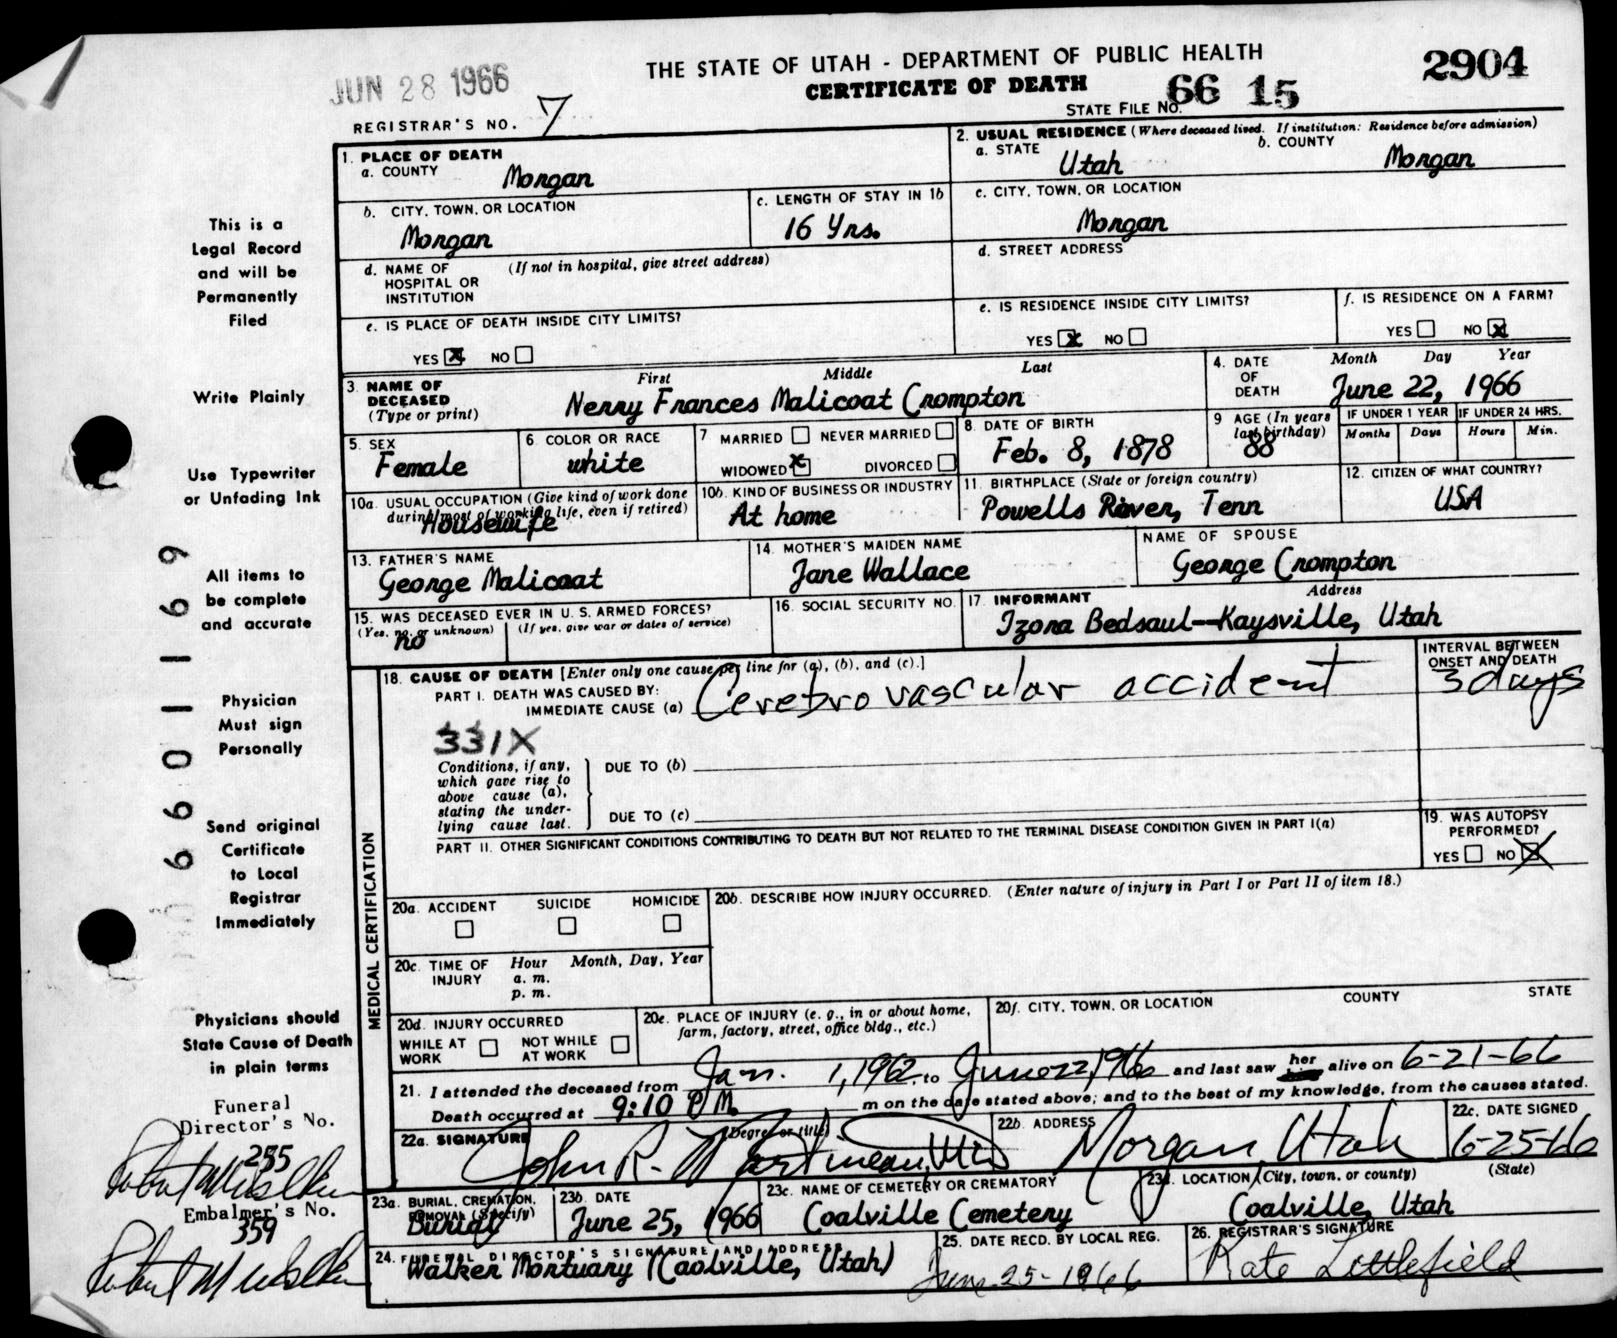 THE STATE OF UTAH - DEPARTMENT OF PUBLIC HEALTH
CERTIFICATE OF DEATH
2904
JUN 28 1966
STATE FILE NO. 66 15
REGISTRAR'S NO. 7
1. PLACE OF DEATH
a. COUNTY Morgan
2. USUAL RESIDENCE (Where deceased lived. If institution: Residence before admission)
a. STATE Utah b. COUNTY Morgan
b. CITY, TOWN, OR LOCATION Morgan
c. LENGTH OF STAY IN 1b 16 Yrs.
c. CITY, TOWN, OR LOCATION Morgan
d. NAME OF HOSPITAL OR INSTITUTION (If not in hospital, give street address)
d. STREET ADDRESS
e. IS PLACE OF DEATH INSIDE CITY LIMITS?
YES X NO
e. IS RESIDENCE INSIDE CITY LIMITS?
YES X NO
f. IS RESIDENCE ON A FARM?
YES NO X
3. NAME OF DECEASED (Type or print)
First Middle Last
Nerry Frances Malicoat Crompton
4. DATE OF DEATH Month Day Year
June 22, 1966
5. SEX Female
6. COLOR OR RACE white
7 MARRIED NEVER MARRIED
WIDOWED X DIVORCED
8. DATE OF BIRTH Feb. 8, 1878
9 AGE (In years last birthday) 88
IF UNDER 1 YEAR IF UNDER 24 HRS.
Months Days Hours Min.
10a. USUAL OCCUPATION (Give kind of work done during most of working life, even if retired)
Housewife
10b. KIND OF BUSINESS OR INDUSTRY
At home
11. BIRTHPLACE (State or foreign country)
Powells River, Tenn
12. CITIZEN OF WHAT COUNTRY?
USA
13. FATHER'S NAME
George Malicoat
14. MOTHER'S MAIDEN NAME
Jane Wallace
NAME OF SPOUSE
George Crompton
15. WAS DECEASED EVER IN U. S. ARMED FORCES?
(Yes, no, or unknown) (If yes, give war or dates of service)
no
16. SOCIAL SECURITY NO.
17. INFORMANT Address
Izora Bedsaul--Kaysville, Utah
MEDICAL CERTIFICATION
18. CAUSE OF DEATH [Enter only one cause per line for (a), (b), and (c).]
PART I. DEATH WAS CAUSED BY:
IMMEDIATE CAUSE (a) Cerebro vascular accident
INTERVAL BETWEEN ONSET AND DEATH
3 days
331X
Conditions, if any, which gave rise to above cause (a), stating the underlying cause last.
DUE TO (b)
DUE TO (c)
PART II. OTHER SIGNIFICANT CONDITIONS CONTRIBUTING TO DEATH BUT NOT RELATED TO THE TERMINAL DISEASE CONDITION GIVEN IN PART I(a)
19. WAS AUTOPSY PERFORMED?
YES NO X
20a. ACCIDENT SUICIDE HOMICIDE
20b. DESCRIBE HOW INJURY OCCURRED. (Enter nature of injury in Part I or Part II of item 18.)
20c. TIME OF INJURY Hour Month, Day, Year
a. m.
p. m.
20d. INJURY OCCURRED
WHILE AT WORK NOT WHILE AT WORK
20e. PLACE OF INJURY (e. g., in or about home, farm, factory, street, office bldg., etc.)
20f. CITY, TOWN, OR LOCATION COUNTY STATE
21. I attended the deceased from Jan. 1, 1962, to June 22, 1966 and last saw her alive on 6-21-66
Death occurred at 9:10 P M. m on the date stated above; and to the best of my knowledge, from the causes stated.
22a. SIGNATURE (Degree or title)
John R. Martineau, MD
22b. ADDRESS
Morgan, Utah
22c. DATE SIGNED
6-25-66
23a. BURIAL, CREMATION, REMOVAL (Specify)
Burial
23b. DATE
June 25, 1966
23c. NAME OF CEMETERY OR CREMATORY
Coalville Cemetery
23d. LOCATION (City, town, or county) (State)
Coalville, Utah
24. FUNERAL DIRECTOR'S SIGNATURE AND ADDRESS
Walker Mortuary (Caolville, Utah)
25. DATE RECD. BY LOCAL REG.
June 25-1966
26. REGISTRAR'S SIGNATURE
Kate Littlefield
This is a
Legal Record
and will be
Permanently
Filed
Write Plainly
Use Typewriter
or Unfading Ink
All items to
be complete
and accurate
Physician
Must sign
Personally
Send original
Certificate
to Local
Registrar
Immediately
Physicians should
State Cause of Death
in plain terms
Funeral
Director's No.
255
Embalmer's No.
359
6601169